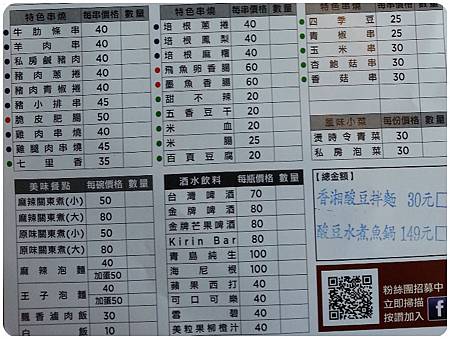 特色串燒 每串價格 數量
牛肋條串 40
羊肉串 40
私房鹹豬肉 40
豬肉蔥捲 40
豬肉青椒捲 40
豬小排串 45
脆皮肥腸 50
雞肉串燒 40
雞腿肉串燒 45
七里香 35
特色串燒 每串價格 數量
培根蔥捲 40
培根鳳梨 40
培根麻糬 40
飛魚卵香腸 60
墨魚香腸 60
甜不辣 20
五香豆干 20
米血 20
米腸 25
百頁豆腐 20
特色串燒 每串價格 數量
四季豆 25
青椒串 25
玉米串 30
杏鮑菇串 30
香菇串 30
風味小菜 每份價格 數量
燙時令青菜 30
私房泡菜 30
美味餐點 每碗價格 數量
麻辣關東煮(小) 50
麻辣關東煮(大) 80
原味關東煮(小) 50
原味關東煮(大) 80
麻辣泡麵 40
加蛋50
王子泡麵 40
加蛋50
飄香滷肉飯 30
白飯 10
酒水飲料 每瓶價格 數量
台灣啤酒 70
金牌啤酒 80
金牌芒果啤酒 80
Kirin Bar 80
青島純生 100
海尼根 100
蘋果西打 40
可口可樂 40
雪碧 40
美粒果柳橙汁 40
【總金額】
香湘酸豆拌麵 30元
酸豆水煮魚鍋 149元
粉絲團招募中
立即掃描
按讚加入
f